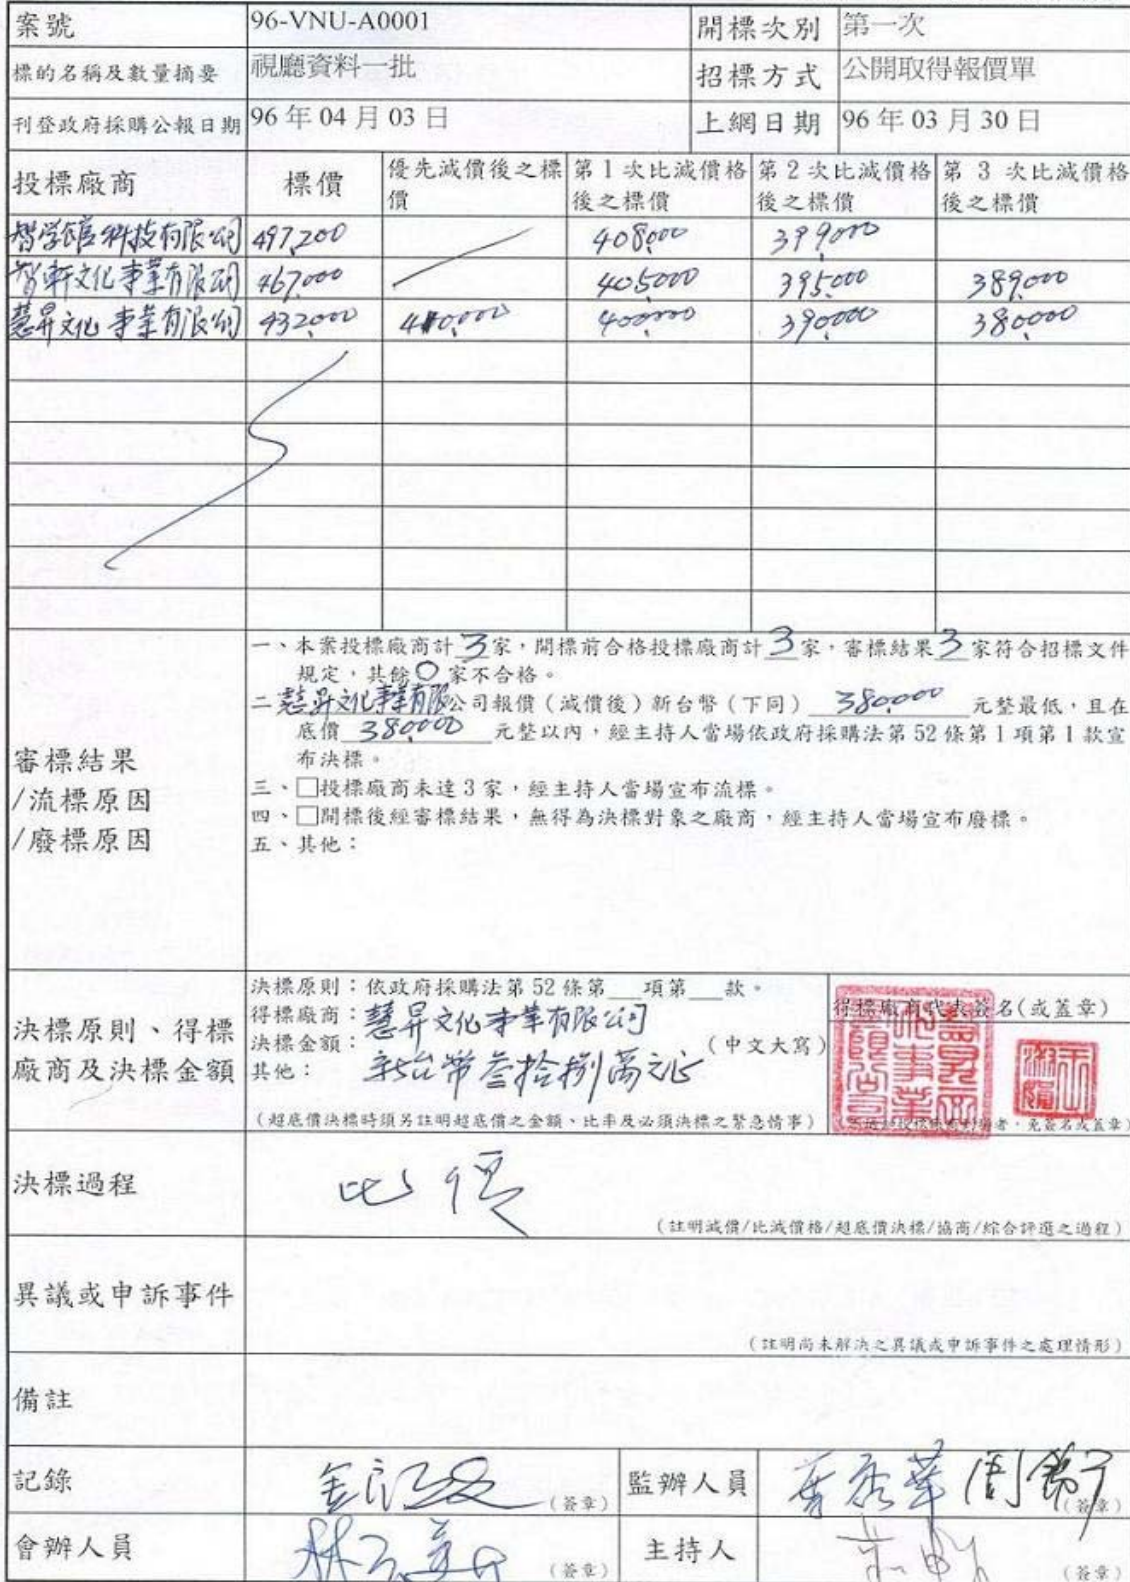 案號 96-VNU-A0001 開標次別 第一次
標的名稱及數量摘要 視廳資料一批 招標方式 公開取得報價單
刊登政府採購公報日期 96 年 04 月 03 日 上網日期 96 年 03 月 30 日
投標廠商 標價 優先減價後之標價 第 1 次比減價格後之標價 第 2 次比減價格後之標價 第 3 次比減價格後之標價
科技有限公司 497,200 408,000 399,000
智軒文化事業有限公司 467,000 405,000 395,000 389,000
慧昇文化事業有限公司 432,000 410,000 400,000 390,000 380,000
審標結果
/流標原因
/廢標原因
一、本案投標廠商計 3 家,開標前合格投標廠商計 3 家,審標結果 3 家符合招標文件
規定,其餘 0 家不合格。
二 慧昇文化事業有限公司報價(減價後)新台幣(下同) 380,000 元整最低,且在
底價 380,000 元整以內,經主持人當場依政府採購法第 52 條第 1 項第 1 款宣
布決標。
三、□投標廠商未達 3 家,經主持人當場宣布流標。
四、□開標後經審標結果,無得為決標對象之廠商,經主持人當場宣布廢標。
五、其他:
決標原則、得標
廠商及決標金額
決標原則:依政府採購法第 52 條第__項第__款。
得標廠商:慧昇文化事業有限公司
決標金額:新台幣叁拾捌萬元正 (中文大寫)
其他:
(超底價決標時須另註明超底價之金額、比率及必須決標之緊急情事)
得標廠商代表簽名(或蓋章)
者,免簽名或蓋章)
決標過程 比價
(註明減價/比減價格/超底價決標/協商/綜合評選之過程)
異議或申訴事件
(註明尚未解決之異議或申訴事件之處理情形)
備註
記錄 (簽章) 監辦人員 (簽章)
會辦人員 (簽章) 主持人 (簽章)